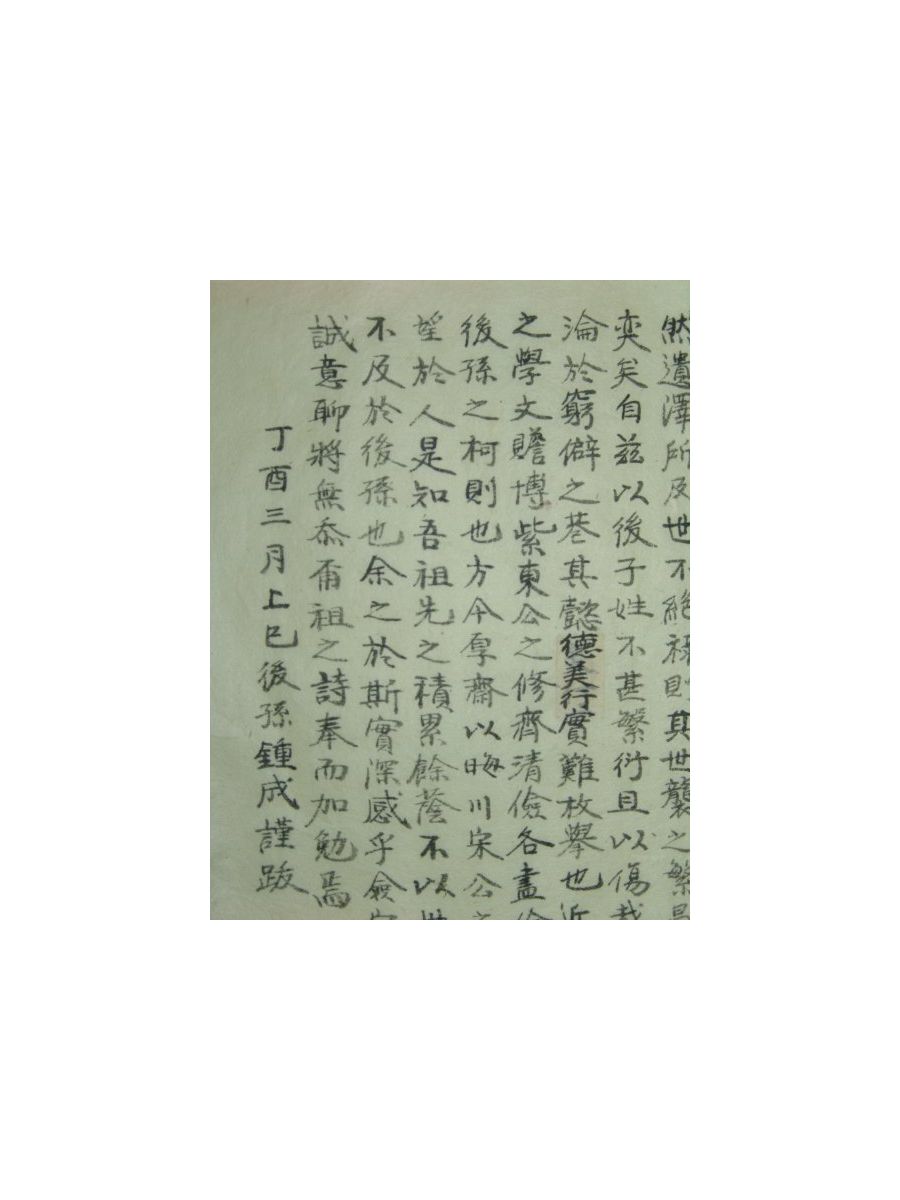 然遺澤所及世不絶祿則其世襲之繁
奕矣自茲以後子姓不甚繁衍且以傷哉
淪於窮僻之巷其懿德美行實難枚擧也近
之學文贍博紫東公之修齊清儉各盡
後孫之柯則也方今厚齋以晦川宋公之
望於人是知吾祖先之積累餘蔭不以世
不及於後孫也余之於斯實深感乎僉
誠意聊將無忝爾祖之詩奉而加勉焉
丁酉三月上巳後孫鍾成謹跋